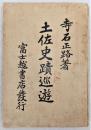 寺石正路著
土佐史蹟巡遊
富士越書店發行